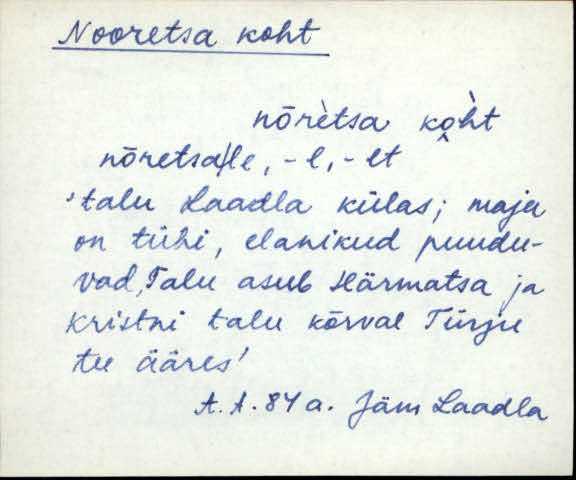 Nooretsa koht
nōrètsa koh̀t
nōretsa/le, -l, -lt
'talu Laadla külas; maja
on tühi, elanikud puudu-
vad, Talu asub Härmatsa ja
Kristni talu kõrval Türju
tee ääres'
A. A. 84 a. Jäm Laadla